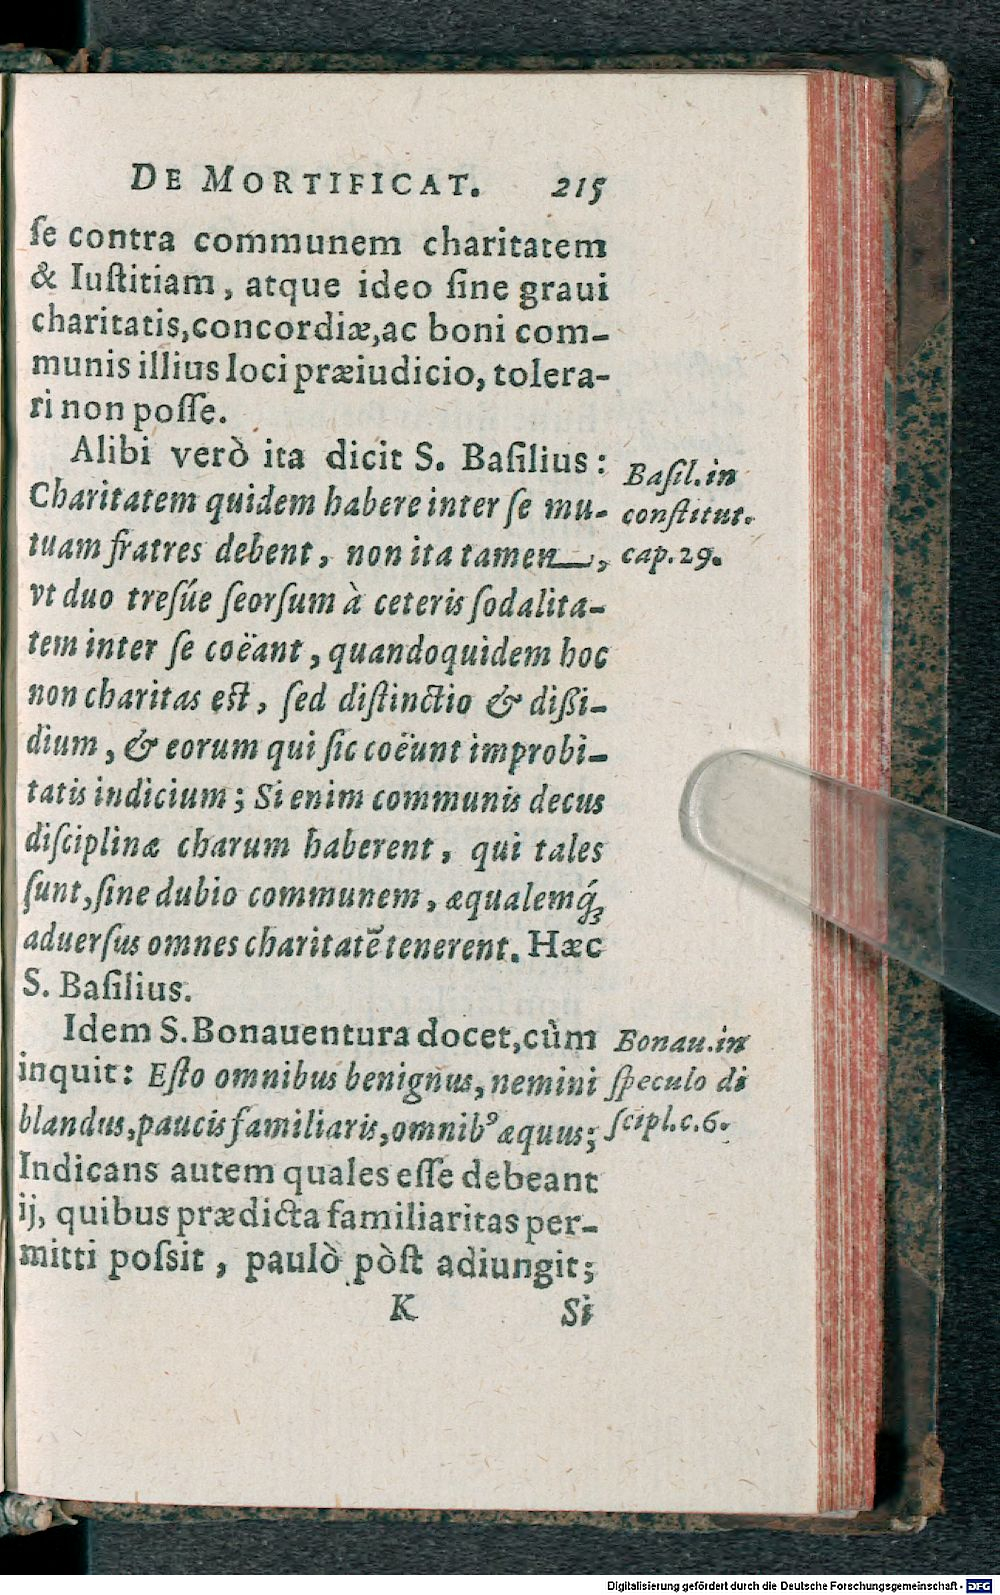 DE MORTIFICAT. 215
ſe contra communem charitatem
& Iuſtitiam, atque ideo ſine graui
charitatis,concordiæ,ac boni com-
munis illius loci præiudicio, tolera-
ri non poſſe.
Alibi verò ita dicit S. Baſilius:
Charitatem quidem habere inter ſe mu-
tuam fratres debent, non ita tamen,
vt duo treſúe ſeorſum à ceteris ſodalita-
tem inter ſe coëant, quandoquidem hoc
non charitas eſt, ſed diſtinctio & dißi-
dium, & eorum qui ſic coëunt improbi-
tatis indicium; Si enim communis decus
diſciplinæ charum haberent, qui tales
ſunt,ſine dubio communem, æqualemq́ꝫ
aduerſus omnes charitatē tenerent. Hæc
S. Baſilius.
Idem S.Bonauentura docet,cùm
inquit: Eſto omnibus benignus, nemini
blandus,paucis familiaris,omnibꝰ æquus;
Indicans autem quales eſſe debeant
ij, quibus prædicta familiaritas per-
mitti poſsit, paulò pòſt adiungit;
K Si
Baſil. in
conſtitut.
cap. 29.
Bonau. in
ſpeculo di
ſcipl. c. 6.
Digitalisierung gefördert durch die Deutsche Forschungsgemeinschaft - DFG